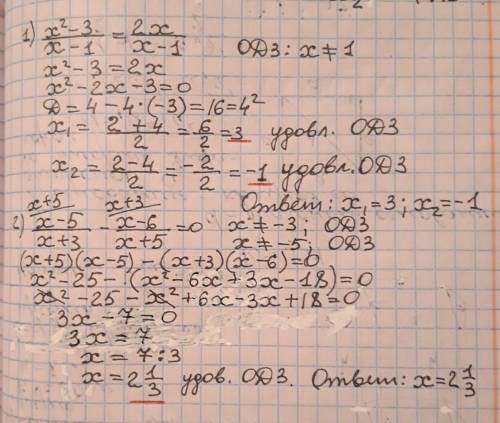 1) x²-3/x-1 = 2x/x-1 ОДЗ: x≠1
x²-3=2x
x²-2x-3=0
D=4-4·(-3)=16=4²
x₁=2+4/2=6/2=3 удовл. ОДЗ
x₂=2-4/2=-2/2=-1 удовл. ОДЗ
Ответ: x₁=3; x₂=-1
x+5 x+3
2) x-5/x+3 - x-6/x+5 =0 x≠-3; ОДЗ
x≠-5; ОДЗ
(x+5)(x-5)-(x+3)(x-6)=0
x²-25-(x²-6x+3x-18)=0
x²-25-x²+6x-3x+18=0
3x-7=0
3x=7
x=7:3
x=2 1/3 удов. ОДЗ. Ответ: x=2 1/3